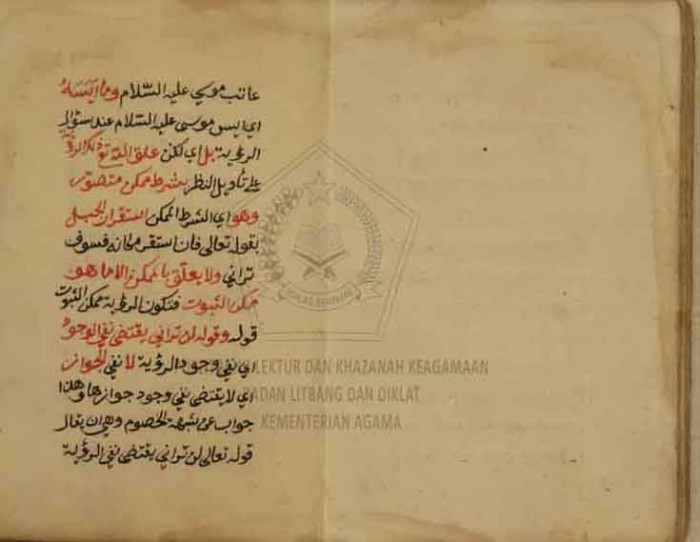 عاتب موسي عليه السّلام وما ايسه
اي ايس موسى عليه السّلام عند سؤال
الرؤية بل اي لكن علق الله تع ذلك الرؤية
على تأويل النظر بشرط ممكن متصور
وهو اي الشرط الممكن استقرار الجبل
بقوله تعالى فان استقر مكانه فسوف
تراني ولا يعلق بالممكن الا ما هو
ممكن الثبوت فتكون الرؤية ممكن الثبوت
قوله وقوله لن تراني يقتضى نفي الوجود
اي نفي وجود الرؤية لا نفي الجواز
اي لا يقتضى نفي وجود جوازها وهذا
جواب عن شبهة الخصوم وهي ان يقال
قوله تعالى لن تراني يقتضى نفي الرؤية
LEKTUR DAN KHAZANAH KEAGAMAAN
BADAN LITBANG DAN DIKLAT
KEMENTERIAN AGAMA